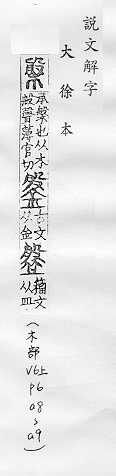 說文解字
大徐本
槃 承槃也从木
般聲薄官切 鎜 古文
从金 盤 籀文
从皿
(木部
V6上
p6
a8
〜
a9)